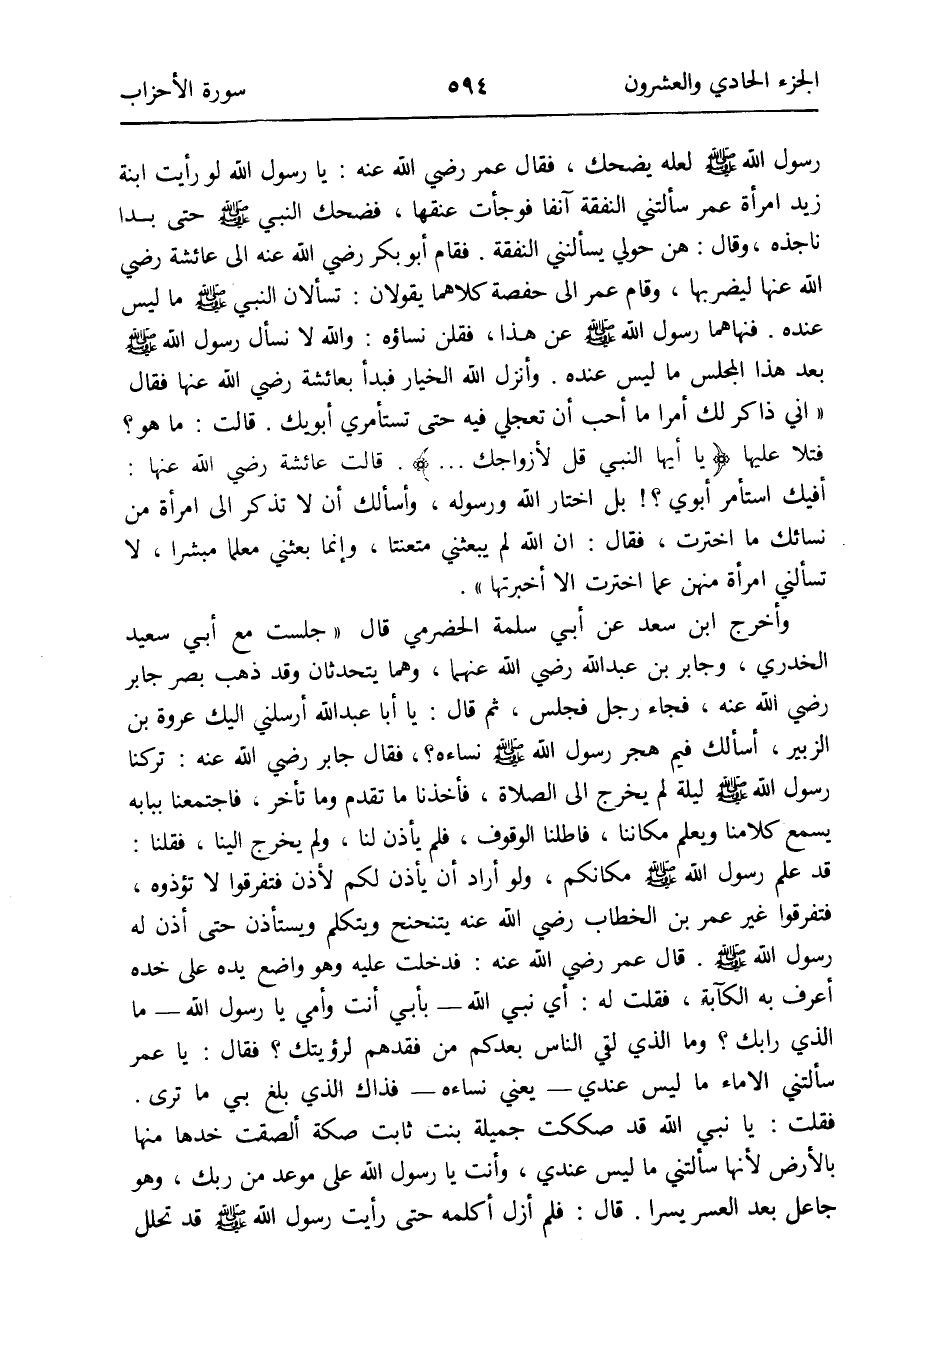 الجزء الحادي والعشرون ٥٩٤ سورة الأحزاب
رسول الله ﷺ لعله يضحك ، فقال عمر رضي الله عنه : يا رسول الله لو رأيت ابنة
زيد امرأة عمر سألتني النفقة آنفا فوجأت عنقها ، فضحك النبي ﷺ حتى بدا
ناجذه ،وقال : هن حولي يسألنني النفقة . فقام أبو بكر رضي الله عنه الى عائشة رضي
الله عنها ليضربها ، وقام عمر الى حفصة كلاهما يقولان : تسألان النبي ﷺ ما ليس
عنده . فنهاهما رسول الله ﷺ عن هذا ، فقلن نساؤه : والله لا نسأل رسول الله ﷺ
بعد هذا المجلس ما ليس عنده . وأنزل الله الخيار فبدأ بعائشة رضي الله عنها فقال
« اني ذاكر لك أمرا ما أحب أن تعجلي فيه حتى تستأمري أبويك . قالت : ما هو ؟
فتلا عليها ﴿ يا أيها النبي قل لأزواجك ... ﴾ . قالت عائشة رضي الله عنها :
أفيك استأمر أبوي ؟! بل اختار الله ورسوله ، وأسألك أن لا تذكر الى امرأة من
نسائك ما اخترت ، فقال : ان الله لم يبعثني متعنتا ، وإنما بعثني معلما مبشرا ، لا
تسألني امرأة منهن عما اخترت الا أخبرتها » .
وأخرج ابن سعد عن أبي سلمة الحضرمي قال « جلست مع أبي سعيد
الخدري ، وجابر بن عبدالله رضي الله عنهما ، وهما يتحدثان وقد ذهب بصر جابر
رضي الله عنه ، فجاء رجل فجلس ، ثم قال : يا أبا عبدالله أرسلني اليك عروة بن
الزبير ، أسألك فيم هجر رسول الله ﷺ نساءه ؟، فقال جابر رضي الله عنه : تركنا
رسول الله ﷺ ليلة لم يخرج الى الصلاة ، فأخذنا ما تقدم وما تأخر ، فاجتمعنا ببابه
يسمع كلامنا ويعلم مكاننا ، فاطلنا الوقوف ، فلم يأذن لنا ، ولم يخرج الينا ، فقلنا :
قد علم رسول الله ﷺ مكانكم ، ولو أراد أن يأذن لكم لأذن فتفرقوا لا تؤذوه ،
فتفرقوا غير عمر بن الخطاب رضي الله عنه يتنحنح ويتكلم ويستأذن حتى أذن له
رسول الله ﷺ . قال عمر رضي الله عنه : فدخلت عليه وهو واضع يده على خده
أعرف به الكآبة ، فقلت له : أي نبي الله — بأبي أنت وأمي يا رسول الله — ما
الذي رابك ؟ وما الذي لقي الناس بعدكم من فقدهم لرؤيتك ؟ فقال : يا عمر
سألتني الاماء ما ليس عندي — يعني نساءه — فذاك الذي بلغ بي ما ترى .
فقلت : يا نبي الله قد صككت جميلة بنت ثابت صكة ألصقت خدها منها
بالأرض لأنها سألتني ما ليس عندي ، وأنت يا رسول الله على موعد من ربك ، وهو
جاعل بعد العسر يسرا . قال : فلم أزل أكلمه حتى رأيت رسول الله ﷺ قد تحلل